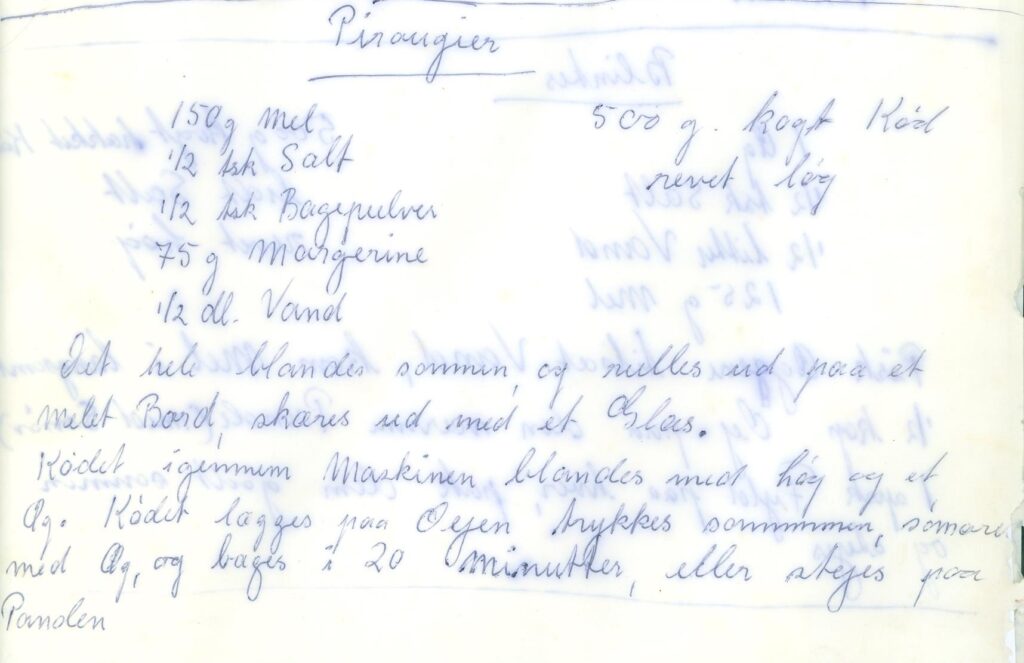 Pirougier
150 g Mel
1/2 tsk Salt
1/2 tsk Bagepulver
75 g Margerine
1/2 dl. Vand
500 g. kogt Kød
revet løg
Det hele blandes sammen, og rulles ud paa et
melet Bord, skæres ud med et Glas.
Kødet igennem Maskinen blandes med løg og et
Æg. Kødet lægges paa Dejen, trykkes sammmen,
med Æg, og bages i 20 Minutter, eller steges paa
Panden